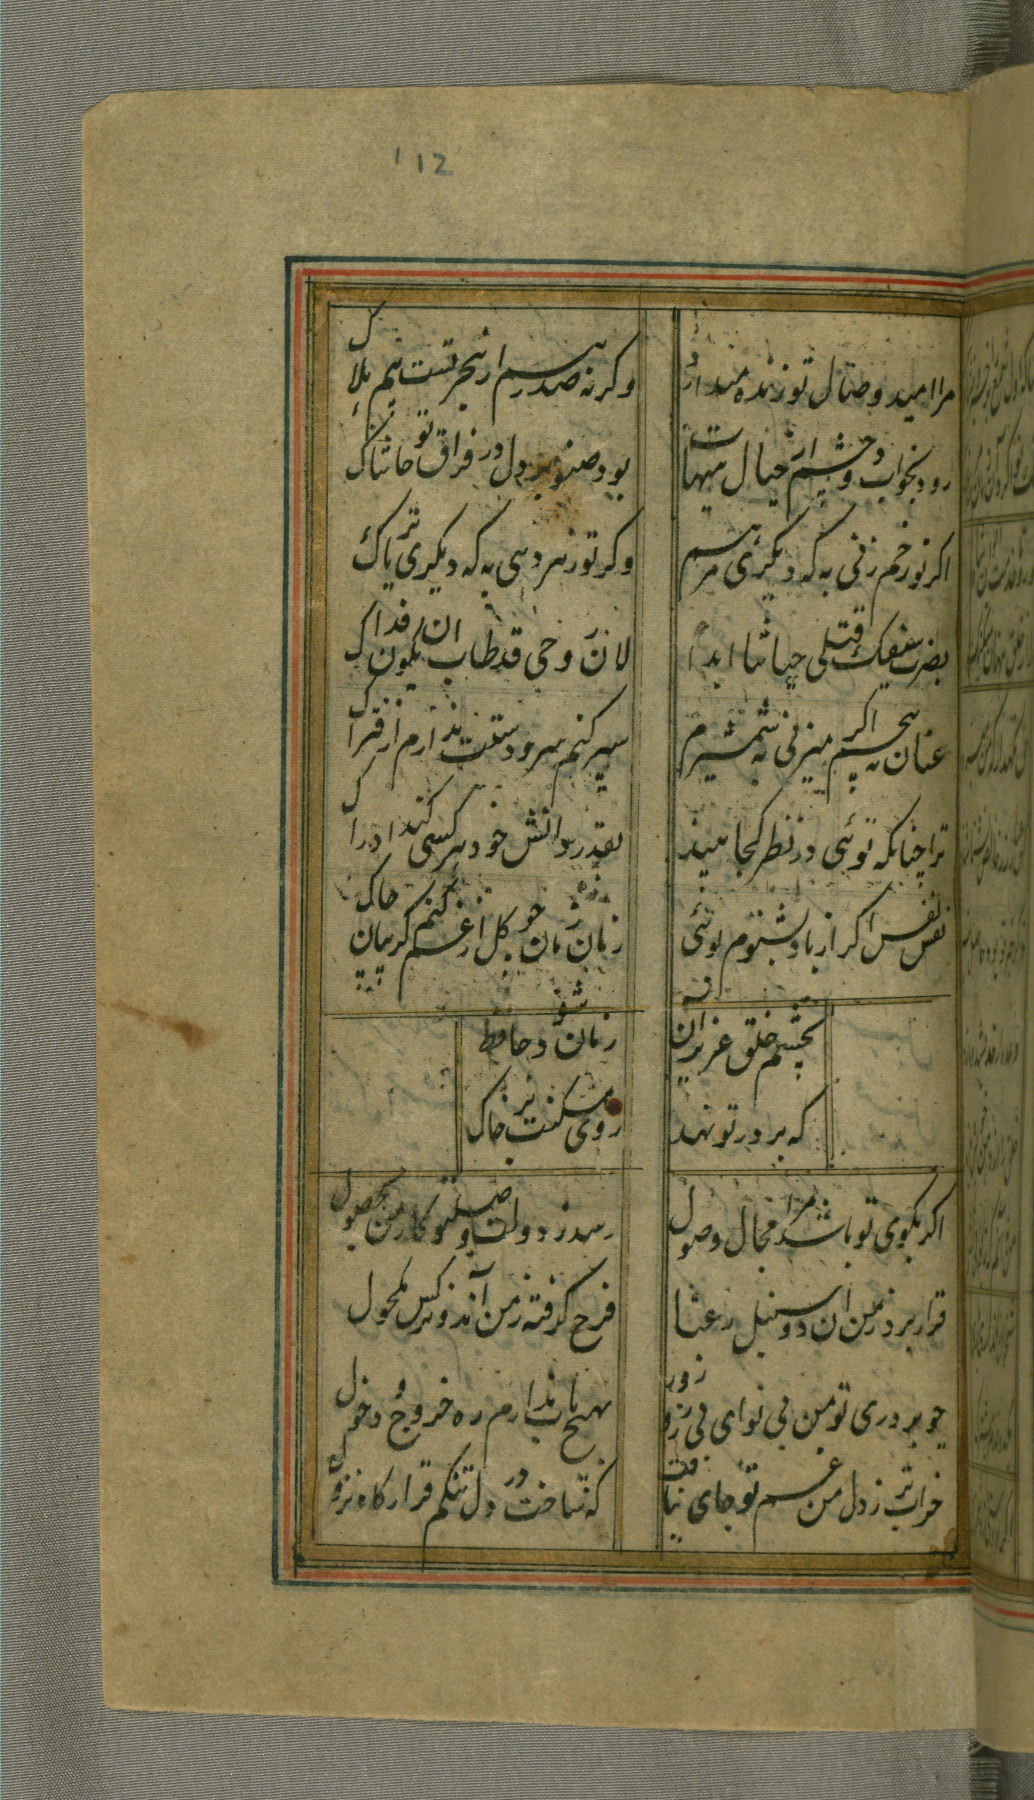 112
مرا امید وصال تو زنده میدارد
وکرنه صد رهم از هجر تست بیم هلاک
رود بخواب دو چشم از خیال تو هیهات
بود صبور دل در فراق تو حاشاک
اکر تو زخم زنی به که دیکری مرهم
وکر تو زهر دهی به که دیکری تریاک
بضرب سیفک قتلی حیاتنا ابدا
لان روحی قد طاب ان یکون فداک
عنان مپیچم اکر میزنی به شمشیرم
سپر کنم سر و دستت ندارم از فتراک
ترا چنانکه توئی در نظر کجا بیند
بقدر دانش خود هر کسی کند ادراک
نفس نفس اکر از باد نشنوم بوئی
زمان زمان جو کل از غم کنم کریبان چاک
بچشم خلق عزیز آن
زمان شود حافظ
که بر در تو نهد
روی مسکنت بر خاک
اکر بکوی تو باشد مرا مجال وصول
رسد ز دولت وصل تو کار من بحصول
قرار برد ز من ان دو سنبل رعنا
فرح کرفته ز من آند و نرکس مکحول
جو بر دری تو من بی نوای بی زر و زور
بهیج باب ندارم ره خروج و دخول
خراب تر ز دل من غم تو جای نیافت
که ساخت در دل تنکم قرارکاه نزول